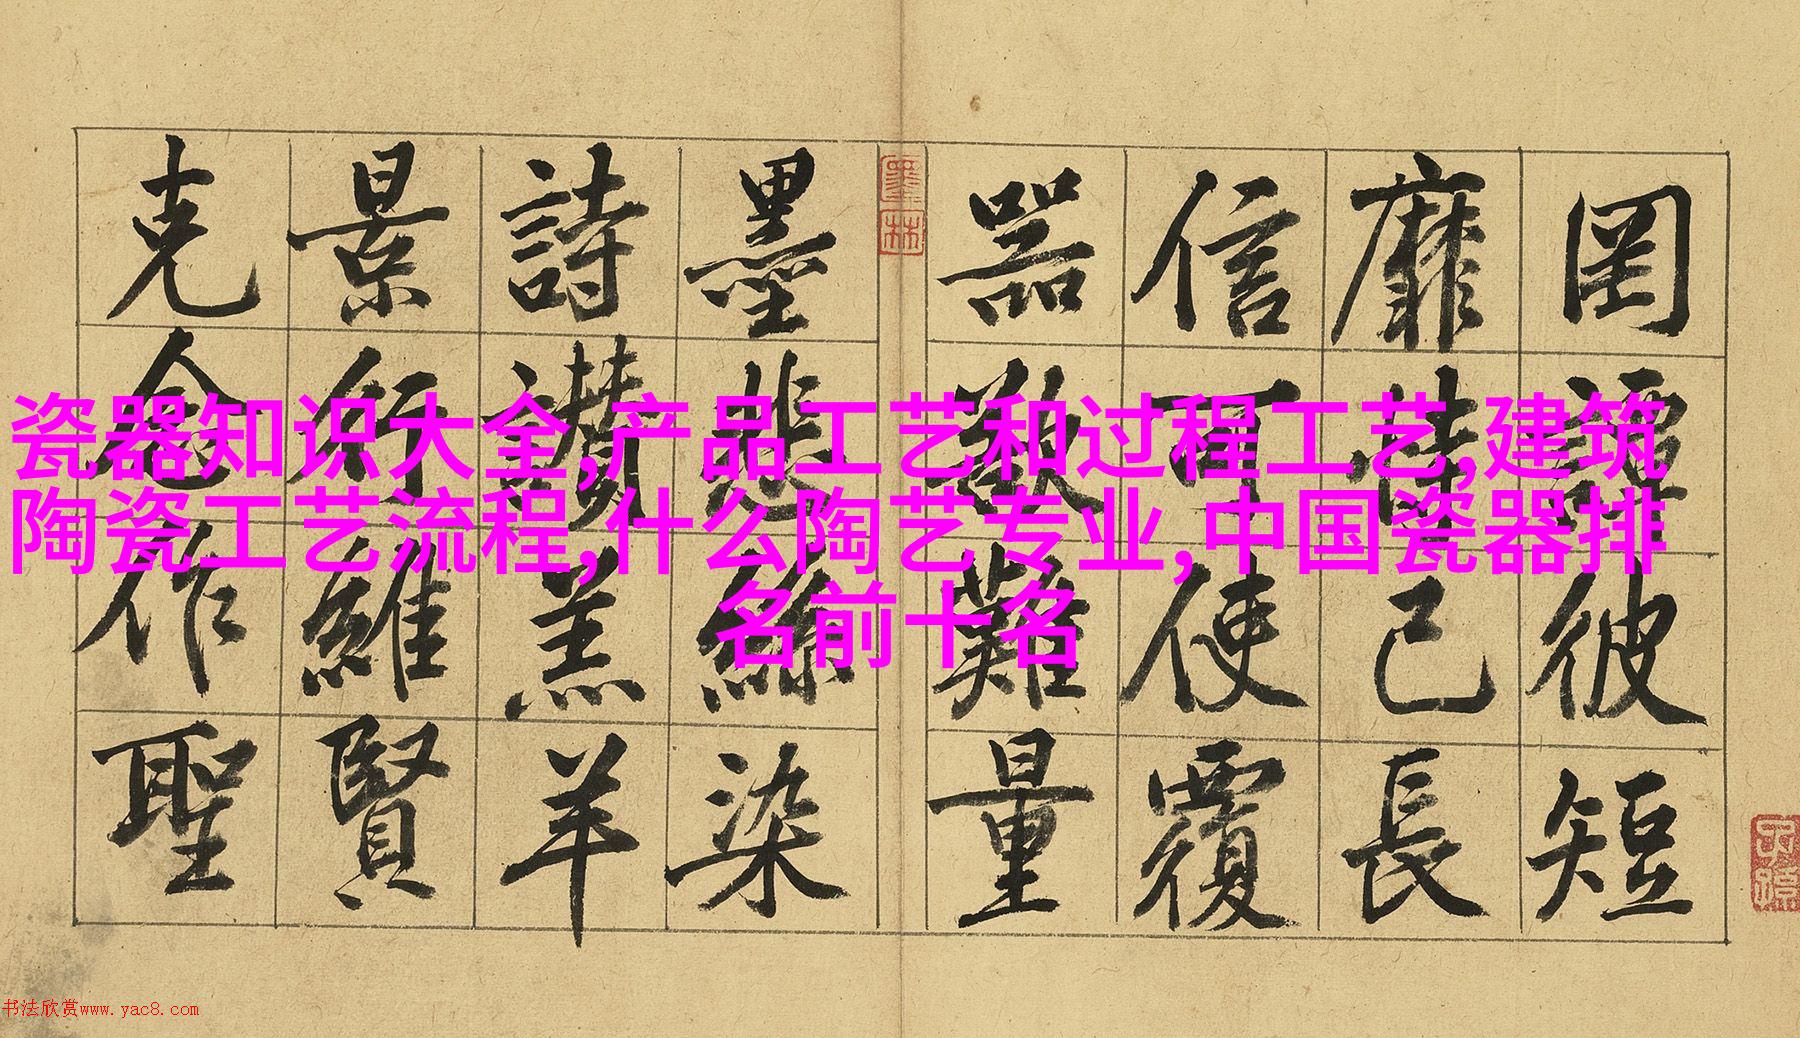 罔談彼短
靡恃己長
信可使覆
器欲難量
墨林
墨悲絲染
詩讚羔羊
景行維賢
克念作聖
瓷器知识大全,产品工艺和过程工艺,建筑
陶瓷工艺流程,什么陶艺专业,中国瓷器排
名前十名
书法欣赏www.yac8.com